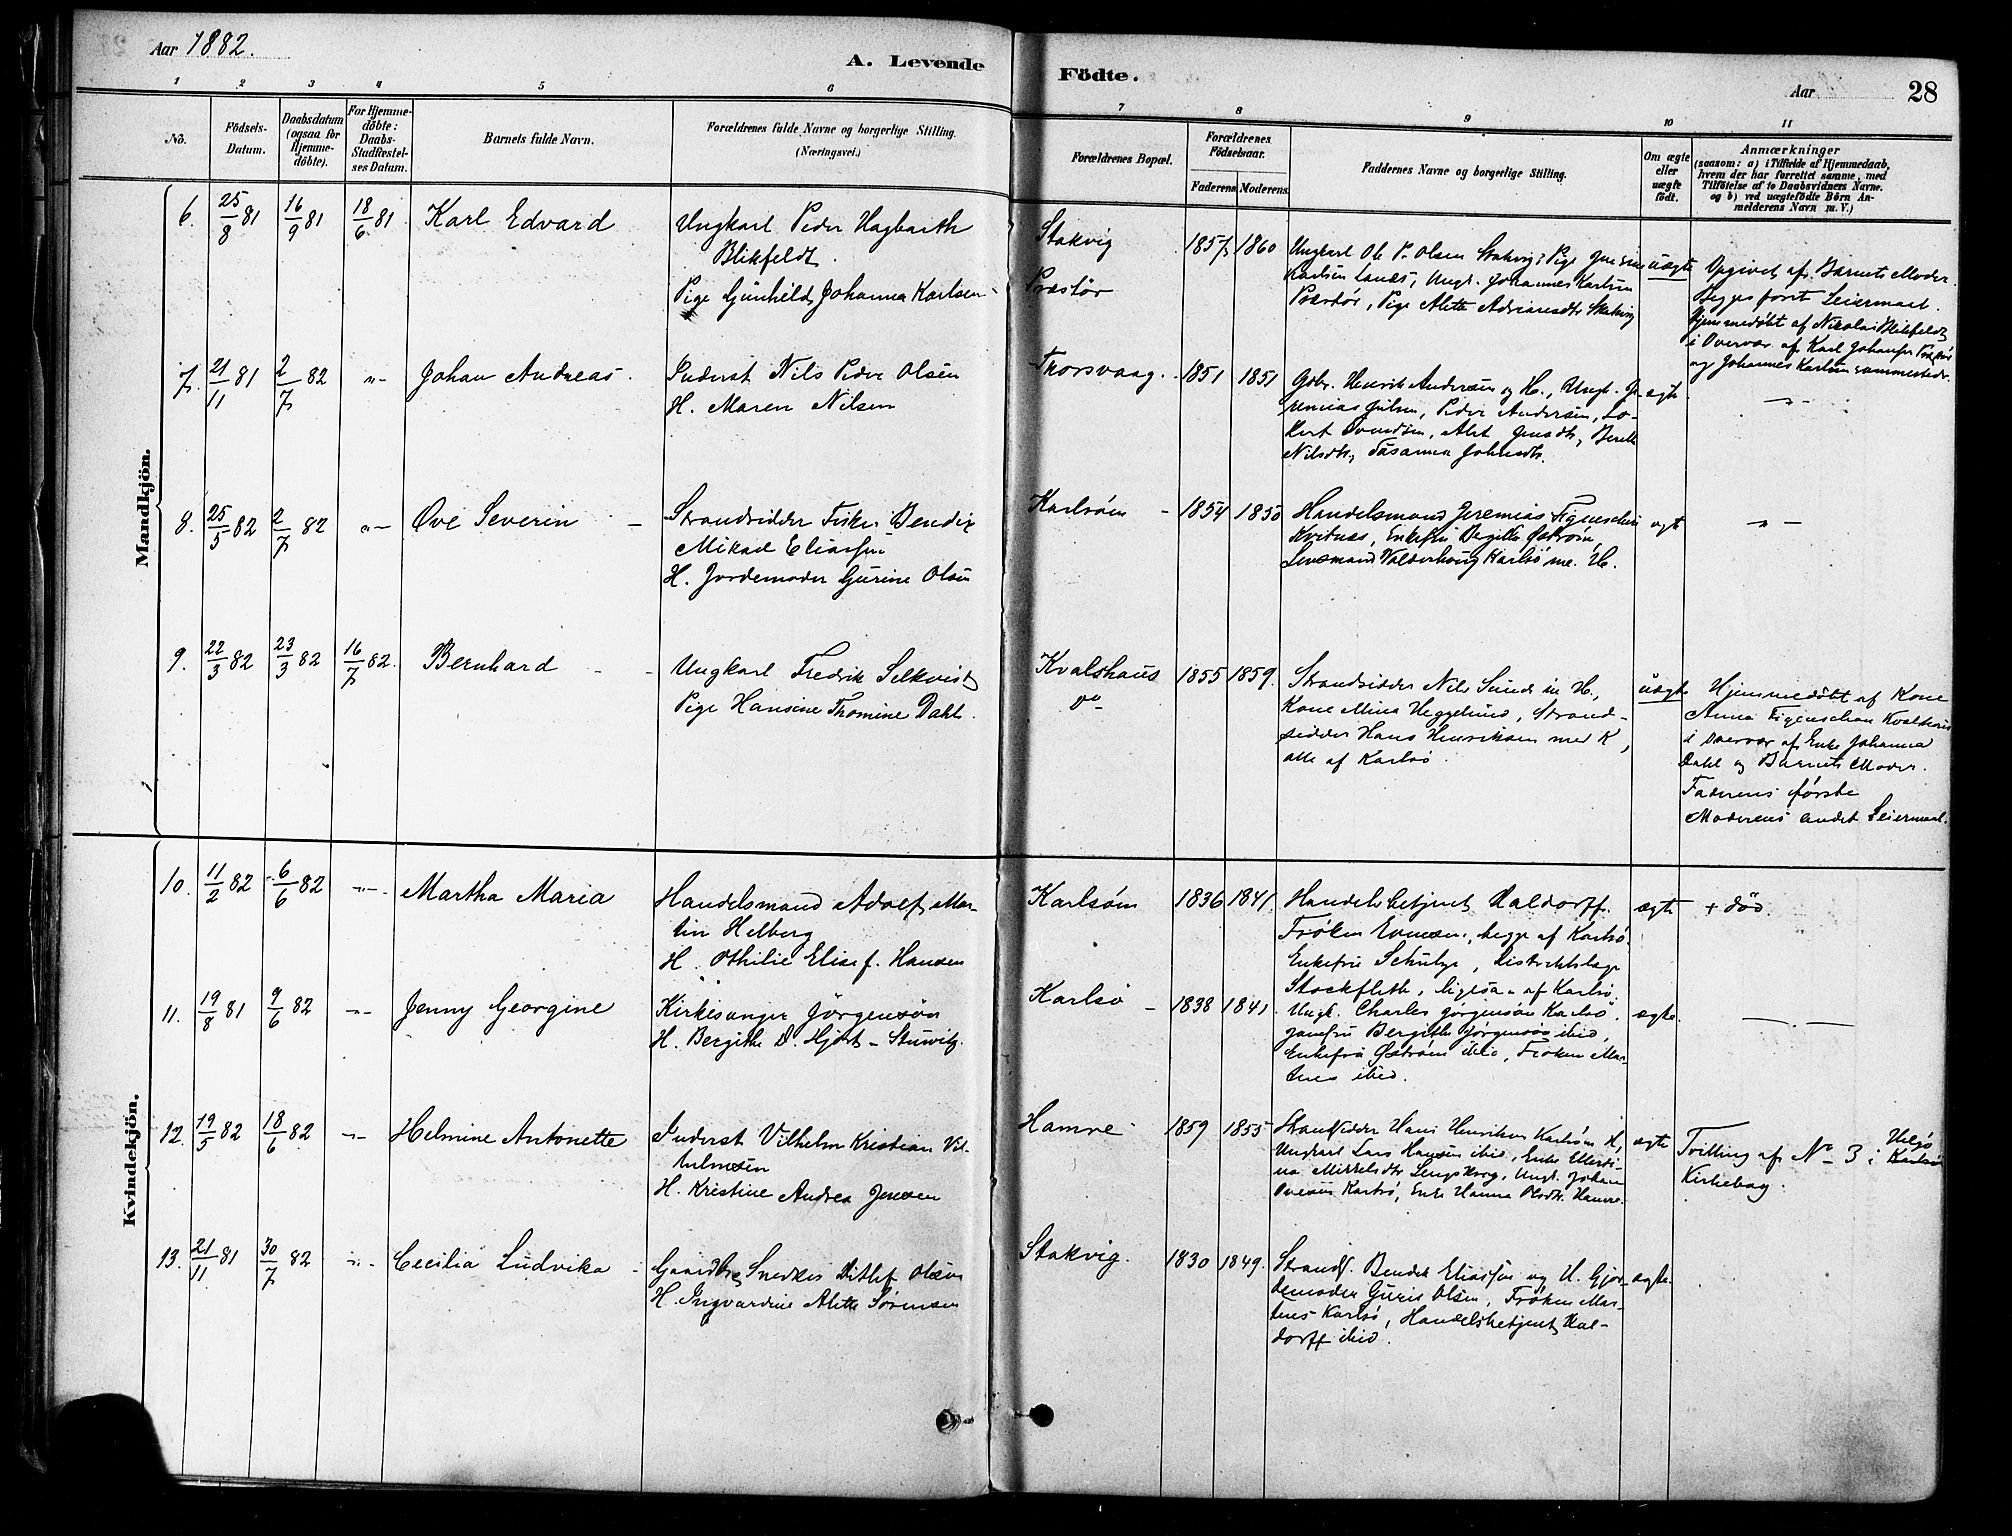 Aar 1882.
A. Levende Födte.
Aar 28
1 2 3 4 5 6 7 8 9 10 11
No.
Födsels-Datum.
Daabsdatum (ogsaa for Hjemme-döbte).
For Hjemme-döbte: Daabs-Stadfestel-ses Datum.
Barnets fulde Navn.
Forældrenes fulde Navne og borgerlige Stilling. (Næringsvei.)
Forældrenes Bopæl.
Forældrenes Födselsaar.
Faderens Moderens
Faddernes Navne og borgerlige Stilling.
Om ægte eller uægte födt.
Anmærkninger (saasom: a) i Tilfælde af Hjemmedaab, hvem der har forrettet samme, med Tilföielse af to Daabsvidners Navne. og b) ved uægtefödte Börn An-melderens Navn m. V.)
Mandkjön.
6. 25/8 81 16/9 81 18/6 81 Karl Edvard
Ungkarl Peder Hagbarth
Blikfeldt.
Pige Gunhild Johanna Karlsen
Stakvig
Præstør
1857 1860
Ungkarl Ole P. Olsen Stakvig, Pige
Karlsen Lanes, Ungk. Johannes Karlsen
Præstør, Pige Alette Adriansdtr Stakvig
uægte
Opgivet af Barnets Moder.
Begges først Leiermaal.
Hjemmedøbt af Nikolai Blikfeldt
i Overvær af Karl Johansen
og Johannes Karlsen sammesteds.
7. 21/11 81 2/7 82 -"- Johan Andreas.
Inderst Nils Peder Olsen
H. Maren Nilsen
Thorsvaag. 1851 1851
Gbr. Henrik Andersen og H., Ungk. Je-
remias Julsen, Peder Andersen, Lo-
rnt Svendsen, Alet Jensdtr, Berith
Nilsdtr, Susanna Johnsdtr.
ægte
-"-
8. 25/5 82 2/7 82 -"- Ove Severin
Strandsidder Fisker Bendix
Mikael Eliassen
H. Jordemoder Gurine Olsen
Karlsøen 1854 1850
Handelsmand Jeremias Figenschou
Kvitnæs, Enkefru Bergithe Østrøm,
Lensmand Valderhoug Karlsø me. H.
ægte
-"-
9. 22/3 82 23/3 82 16/7 82. Bernhard
Ungkarl Fredrik Selkvist
Pige Hansine Thomine Dahl.
Kvalshaus
do
1855 1859.
Strandsidder Nils Sund m H.,
Kone Mina Heggelund, Strand-
sidder Hans Henriksen med K,
alle af Karlsø.
uægte
Hjemmedøbt af Kone
Anna Figenschou Kvalshaus
i overvær af Enke Johanna
Dahl og Barnets Moder.
Faderens første
Moderens andet Leiermaal.
Kvindekjön.
10. 11/2 82 6/6 82 -"- Martha Maria
Handelsmand Adolf Mar-
tin Helberg
H. Othilie Elise f. Hansen
Karlsøen 1836 1841
Handelsbetjent Valdorff.
Frøken Evensen, begge af Karlsø.
Enkefru Schultze, Distriktslæge
Stockfleth, ligesaa af Karlsø.
ægte
+ død.
11. 19/8 81 9/6 82 -"- Jenny Georgine
Kirkesanger Jørgensøn
H. Bergithe D. Hjort - Stuwitz.
Karlsø 1838 1841
Ungk. Charles Jørgensøn Karlsø,
Jomfru Bergithe Jørgensøn ibid,
Enkefru Østrøm ibid, Frøken Mar-
tens ibid.
ægte.
— " —
12. 19/5 82 18/6 82 -"- Helmine Antonette
Inderst Vilhelm Kristian Vil-
helmsen
H. Kristine Andrea Jensen
Hamre 1859 1855
Strandsidder Hans Henriksen Karlsøen H,
Ungkarl Lars Hansen ibid, Enke Ellerti-
na Mikkelsdtr Lengskog, Ungk. Johan
Ovesen Karlsø, Enke Hanna Olsdtr Hamre.
ægte
Tvilling af No 3 i Helgø Karlsø
Kirkebog.
13. 21/11 81 30/7 82 -"- Cecilia Ludvika
Gaardbr Snedker Ditlef Olsen
H. Ingvardine Alette Sørensen
Stakvig. 1830 1849.
Strands. Bendik Eliassen og H. Gjor-
demoder Gurine Olsen, Frøken Mar-
tens Karlsø, Handelsbetjent Val-
dorff ibid.
ægte.